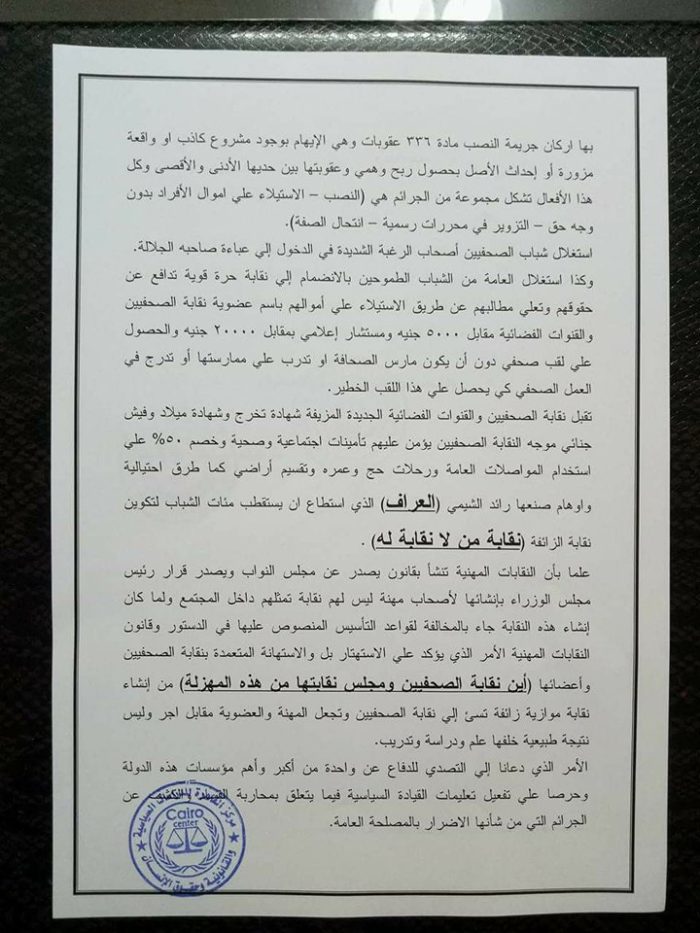 بها اركان جريمة النصب مادة ٣٣٦ عقوبات وهي الإيهام بوجود مشروع كاذب او واقعة
مزورة أو إحداث الأصل بحصول ربح وهمي وعقوبتها بين حديها الأدنى والأقصى وكل
هذا الأفعال تشكل مجموعة من الجرائم هي (النصب – الاستيلاء علي اموال الأفراد بدون
وجه حق – التزوير في محررات رسمية – انتحال الصفة).
استغلال شباب الصحفيين أصحاب الرغبة الشديدة في الدخول إلي عباءة صاحبه الجلالة.
وكذا استغلال العامة من الشباب الطموحين بالانضمام إلي نقابة حرة قوية تدافع عن
حقوقهم وتعلي مطالبهم عن طريق الاستيلاء علي أموالهم باسم عضوية نقابة الصحفيين
والقنوات الفضائية مقابل ٥٠٠٠ جنيه ومستشار إعلامي بمقابل ٢٠٠٠٠ جنيه والحصول
علي لقب صحفي دون أن يكون مارس الصحافة او تدرب علي ممارستها أو تدرج في
العمل الصحفي كي يحصل علي هذا اللقب الخطير.
تقبل نقابة الصحفيين والقنوات الفضائية الجديدة المزيفة شهادة تخرج وشهادة ميلاد وفيش
جنائي موجه النقابة الصحفيين يؤمن عليهم تأمينات اجتماعية وصحية وخصم ٥٠% علي
استخدام المواصلات العامة ورحلات حج وعمره وتقسيم أراضي كما طرق احتيالية
واوهام صنعها رائد الشيمي (العراف) الذي استطاع ان يستقطب مئات الشباب لتكوين
نقابة الزائفة (نقابة من لا نقابة له) .
علما بأن النقابات المهنية تنشأ بقانون يصدر عن مجلس النواب ويصدر قرار رئيس
مجلس الوزراء بإنشائها لأصحاب مهنة ليس لهم نقابة تمثلهم داخل المجتمع ولما كان
إنشاء هذه النقابة جاء بالمخالفة لقواعد التأسيس المنصوص عليها في الدستور وقانون
النقابات المهنية الأمر الذي يؤكد علي الاستهتار بل والاستهانة المتعمدة بنقابة الصحفيين
وأعضائها (أين نقابة الصحفيين ومجلس نقابتها من هذه المهزلة) من إنشاء
نقابة موازية زائفة تسئ إلي نقابة الصحفيين وتجعل المهنة والعضوية مقابل اجر وليس
نتيجة طبيعية خلفها علم ودراسة وتدريب.
الأمر الذي دعانا إلي التصدي للدفاع عن واحدة من أكبر وأهم مؤسسات هذه الدولة
وحرصا علي تفعيل تعليمات القيادة السياسية فيما يتعلق بمحاربة عن
الجرائم التي من شأنها الاضرار بالمصلحة العامة.
مركز القاهرة للدراسات السياسية
Cairo
center
والقانونية وحقوق الإنسان